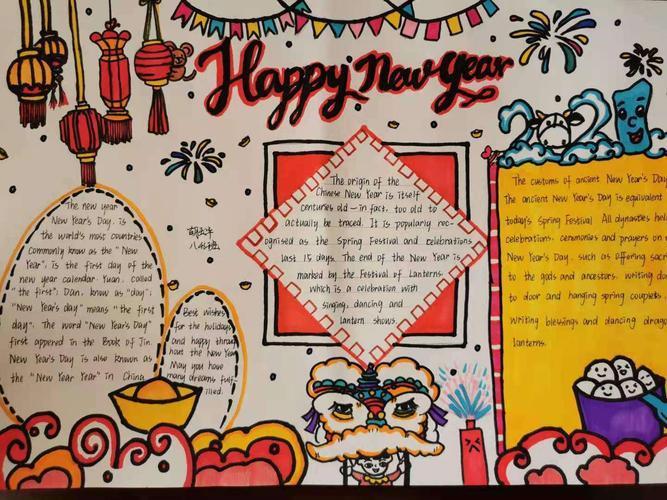 Happy New Year
2021
The new year
New Year's Day. is
the world's most countries
commonly know as the "New
Year". is the first day of the
new year calendar Yuan. called
the "first". Dan. know as "day".
"New Year's day" means "the first
day". The word "New Year's Day"
first appered in the Book of Jin.
New Year's Day is also known as
the "New Year Year" in China
Best wishes
for the holidays
and happy throu
hout the New Year
May you have
many dreams fulf
illed.
The origin of the
Chinese New Year is itself
centuries old - in fact, too old to
actually be traced. It is popularly rec-
ognised as the Spring Festival and celebrations
last 15 days. The end of the New Year is
marked by the Festival of Lanterns.
which is a celebration with
singing, dancing and
lantern shows.
The customs of ancient New Year's Day
The ancient New Year's Day is equivalent
today's Spring Festival All dynasties hol
celebrations. ceremonies and prayers on
New Year's Day. such as offering sac
to the gods and ancestors. writing do
to door and hanging spring couplets
writing blessings and dancing drago
lanterns.